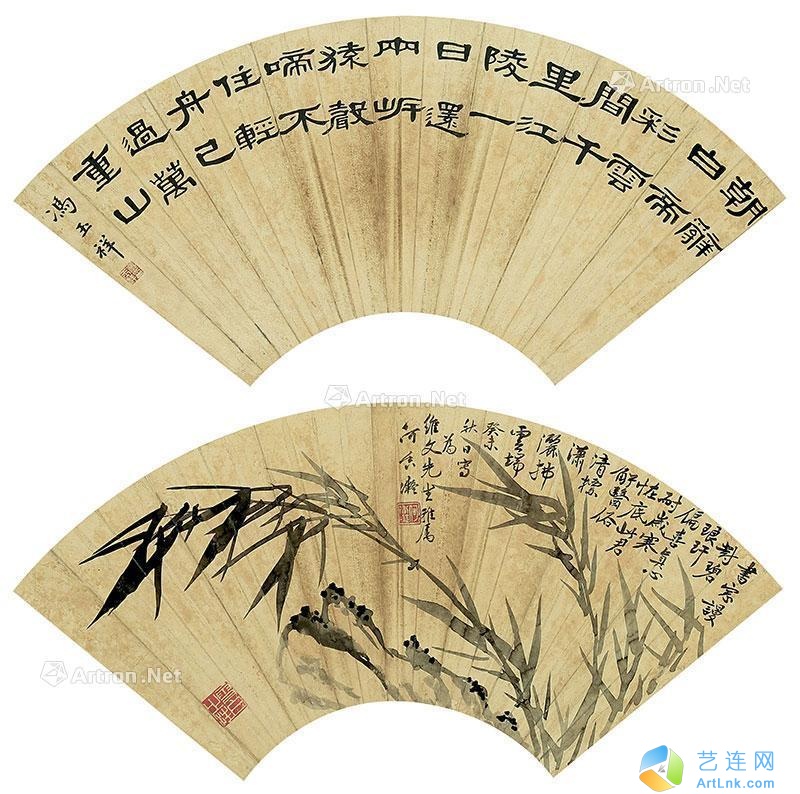 朝辭
白帝
彩雲
間千
里江
陵一
日還
兩岸
猿聲
啼不
住輕
舟已
過萬
重山
馮玉祥
書窗謾
對碧
琅玕
偏喜真心
耐歲寒
怪底此君
解醫俗
清標
瀟
灑拂
雲端
癸未
秋日寫
為
維文先生雅屬
何香凝
Artron.Net
Artron.Net
Artron.Net
Artron.Net
艺连网
ArtLnk.com